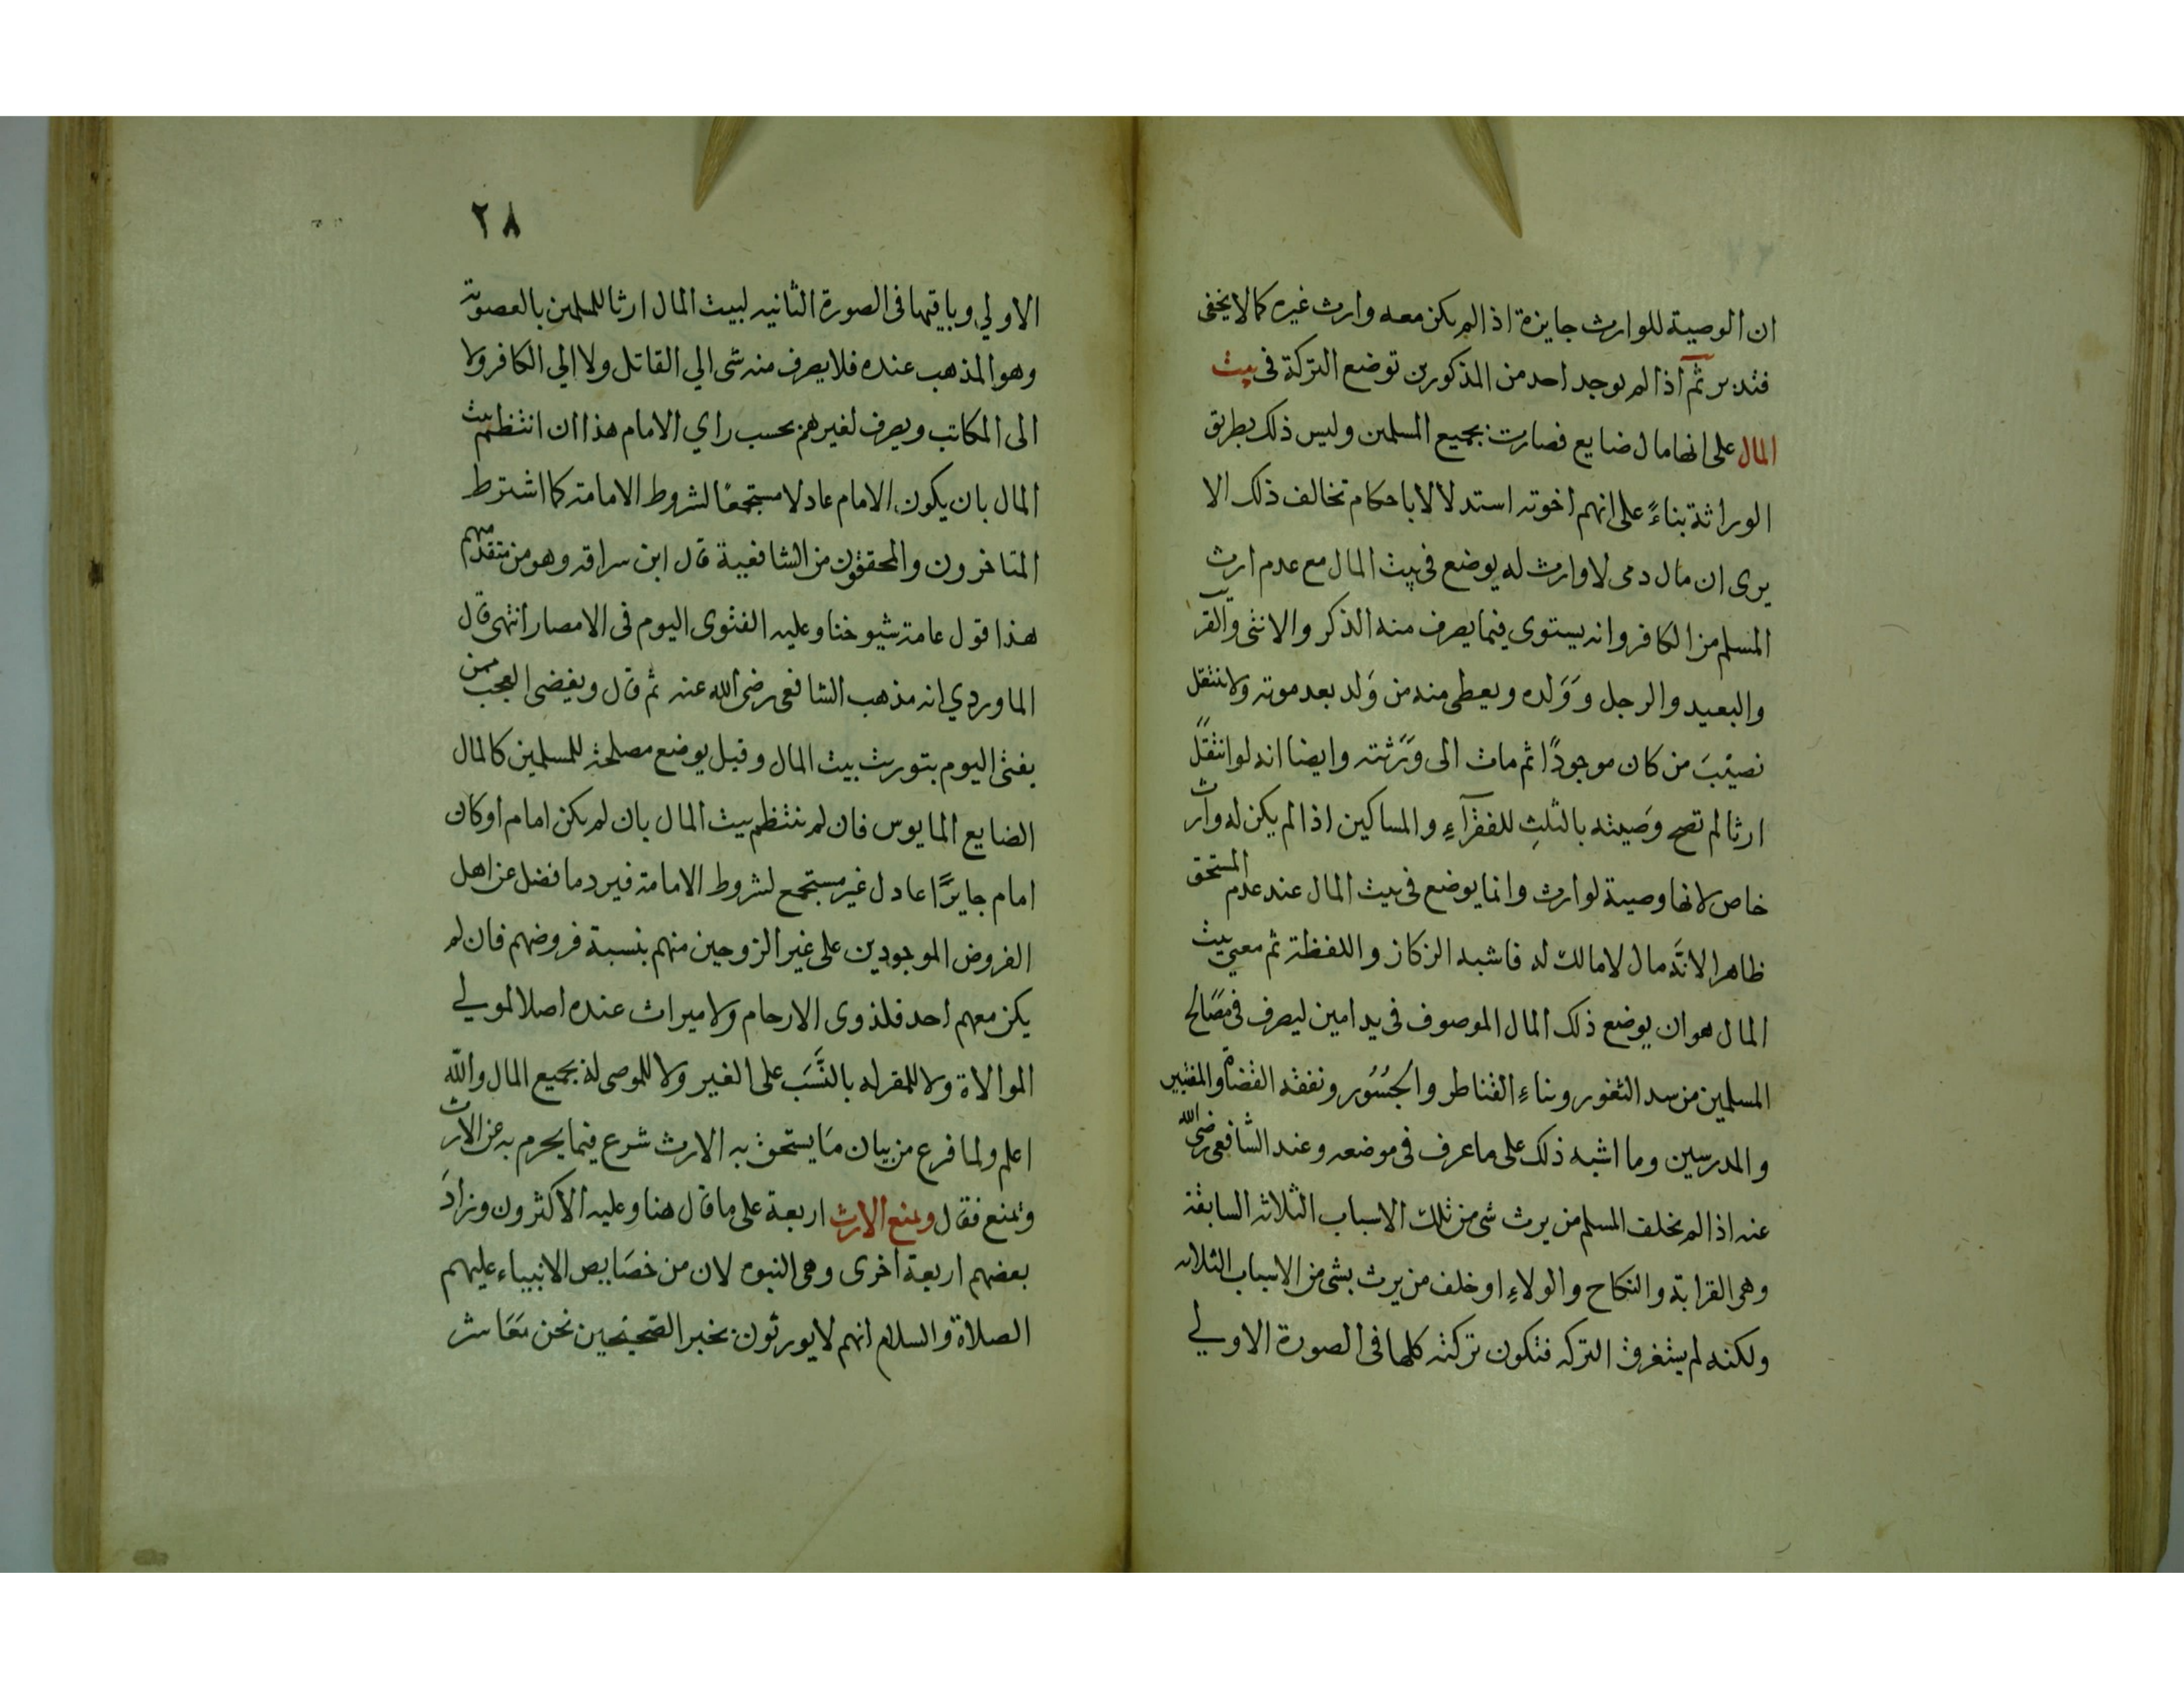 ان الوصية للوارث جايزة اذا لم يكن معه وارث غيره كما لا يخفى
فتدبر ثم اذا لم يوجد احد من المذكورين توضع التركة فى بيت
المال على انها مال ضايع فصارت بجميع المسلمين وليس ذلك بطريق
الوراثة بناءً على انهم اخوته استدلالا باحكام تخالف ذلك الا
يرى ان مال دمى لا وارث له يوضع فى بيت المال مع عدم ارث
المسلم من الكافر وانه يستوى فيما يصرف منه الذكر والانثى والقريب
والبعيد والرجل وَوَلده ويعطى منه من وَلد بعد موته ولا ينتقل
نصيبَ من كان موجودًا ثم مات الى وَرَثته وايضا انه لو انتقل
ارثا لم تصح وصَيته بالثلثِ للفقرآءِ والمساكين اذا لم يكن له وارث
خاص لانها وصية لوارث وانما يوضع فى بيت المال عند عدم المستحق
ظاهرا لانّه مال لا مالك له فاشبه الزكاز واللفظة ثم معنى بيت
المال هو ان يوضع ذلك المال الموصوف فى يد امين ليصرف فى مصَالح
المسلمين من سد الثغور وبناءِ القناطر والجُسُور ونفقه القضاة والمفتيين
والمدرسين وما اشبه ذلك على ما عرف فى موضعه وعند الشافعى رضى الله
عنه اذا لم يخلف المسلم من يرث شى من تلك الاسباب الثلاثه السابقة
وهى القرابة والنكاح والولاءِ او خلف من يرث بشى من الاسباب الثلاثه
ولكنه لم يستغرق التركه فتكون تركته كلها فى الصورة الاولي
٢٨
الاولي وباقيها فى الصورة الثانيه لبيت المال ارثا للمسلمين بالعصوبة
وهو المذهب عنده فلا يصرف منه شى الي القاتل ولا الي الكافر ولا
الى المكاتب ويصرف لغيرهم بحسب راي الامام هذا ان انتظم بيت
المال بان يكون الامام عادلا مستجمعًا لشروط الامامة كما اشترط
المتاخرون والمحققون من الشافعية قال ابن سراقه وهو من متقدميهم
هذا قول عامة شيوخنا وعليه الفتوى اليوم فى الامصار انتهى قال
الماوردي انه مذهب الشافعى رضى الله عنه ثم قال ويغضى العجب ممن
يفتى اليوم بتوريث بيت المال وقبل يوضع مصلحة للمسلمين كالمال
الضايع المايوس فان لم ينتظم بيت المال بان لم يكن امام او كان
امام جايرًا عادل غير مستجمع لشروط الامامة فيرد ما فضل عن اهل
الفروض الموجودين على غير الزوجين منهم بنسبة فروضهم فان لم
يكن معهم احد فلذوى الارحام ولا ميراث عنده اصلا لمولي
الموالاة ولا للمقر له بالنَّسَب على الغير ولا للموصى له بجميع المال والله
اعلم ولما فرع من بيان مَا يستحق به الارث شرع فيما يحرم به عن الارث
وتمنع فقال ويمنع الارث اربعة على ما قال هنا وعليه الاكثرون وزادَ
بعضهم اربعة اخرى وهى النبوه لان من خصَايص الانبياء عليهم
الصلاة والسلام انهم لا يورثون بخبر الصحيحين نحن معَاشر